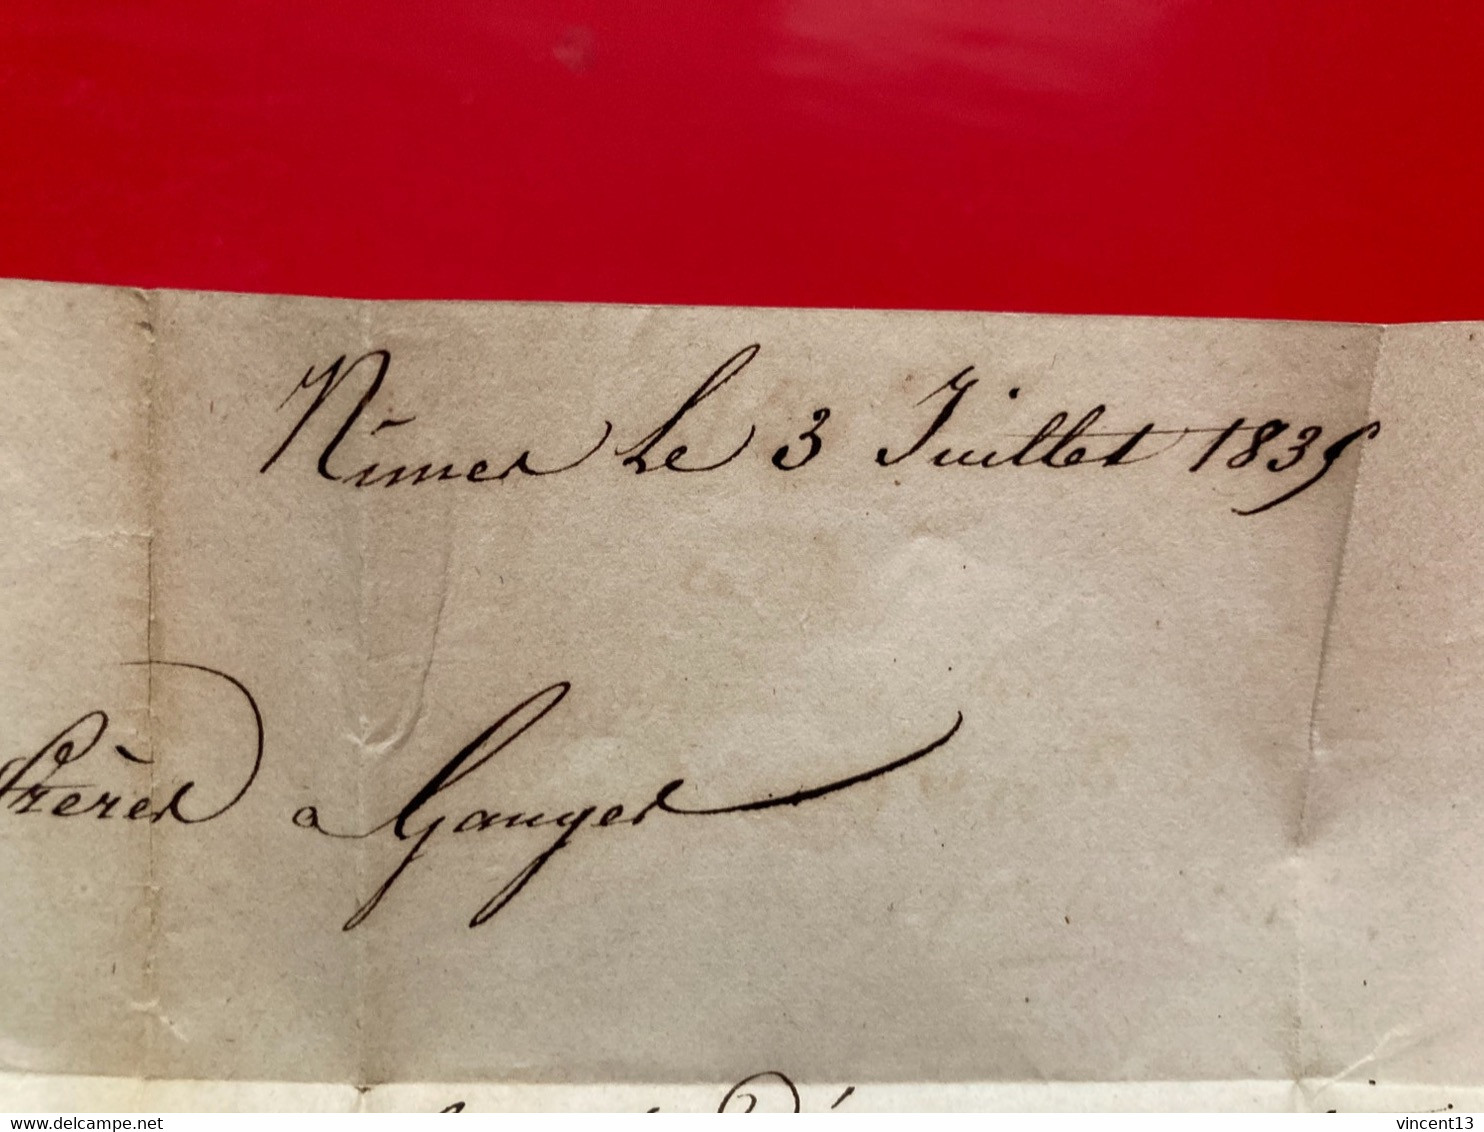 Nimes le 3 Juillet 1835
frères a Ganges
delcampe.net
vincent13